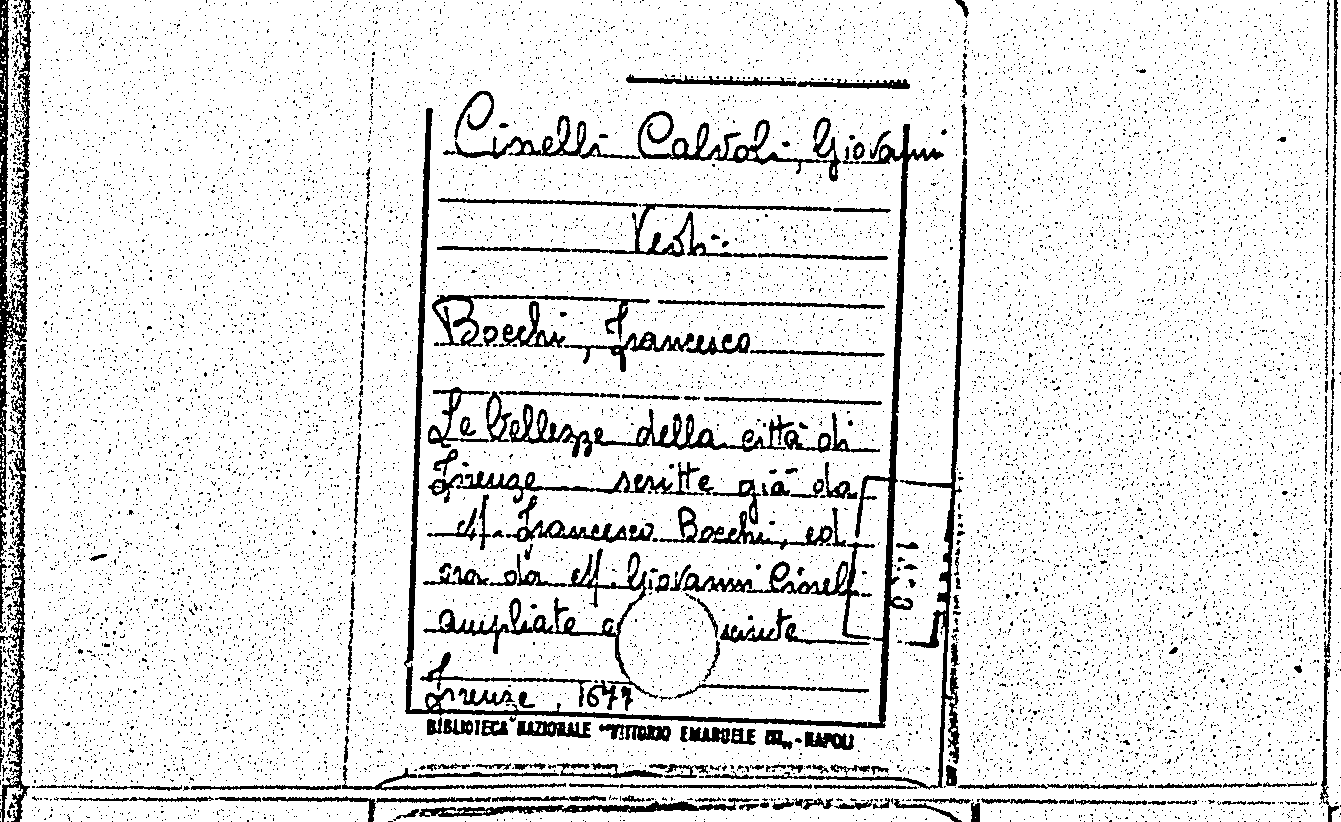 Cinelli Calvoli, Giovanni
Vedi:
Bocchi, Francesco
Le bellezze della città di
Firenze scritte già da
M. Francesco Bocchi, ed
ora da M. Giovanni Cinelli
ampliate
Firenze, 1677
BIBLIOTECA NAZIONALE "VITTORIO EMANUELE III" - NAPOLI